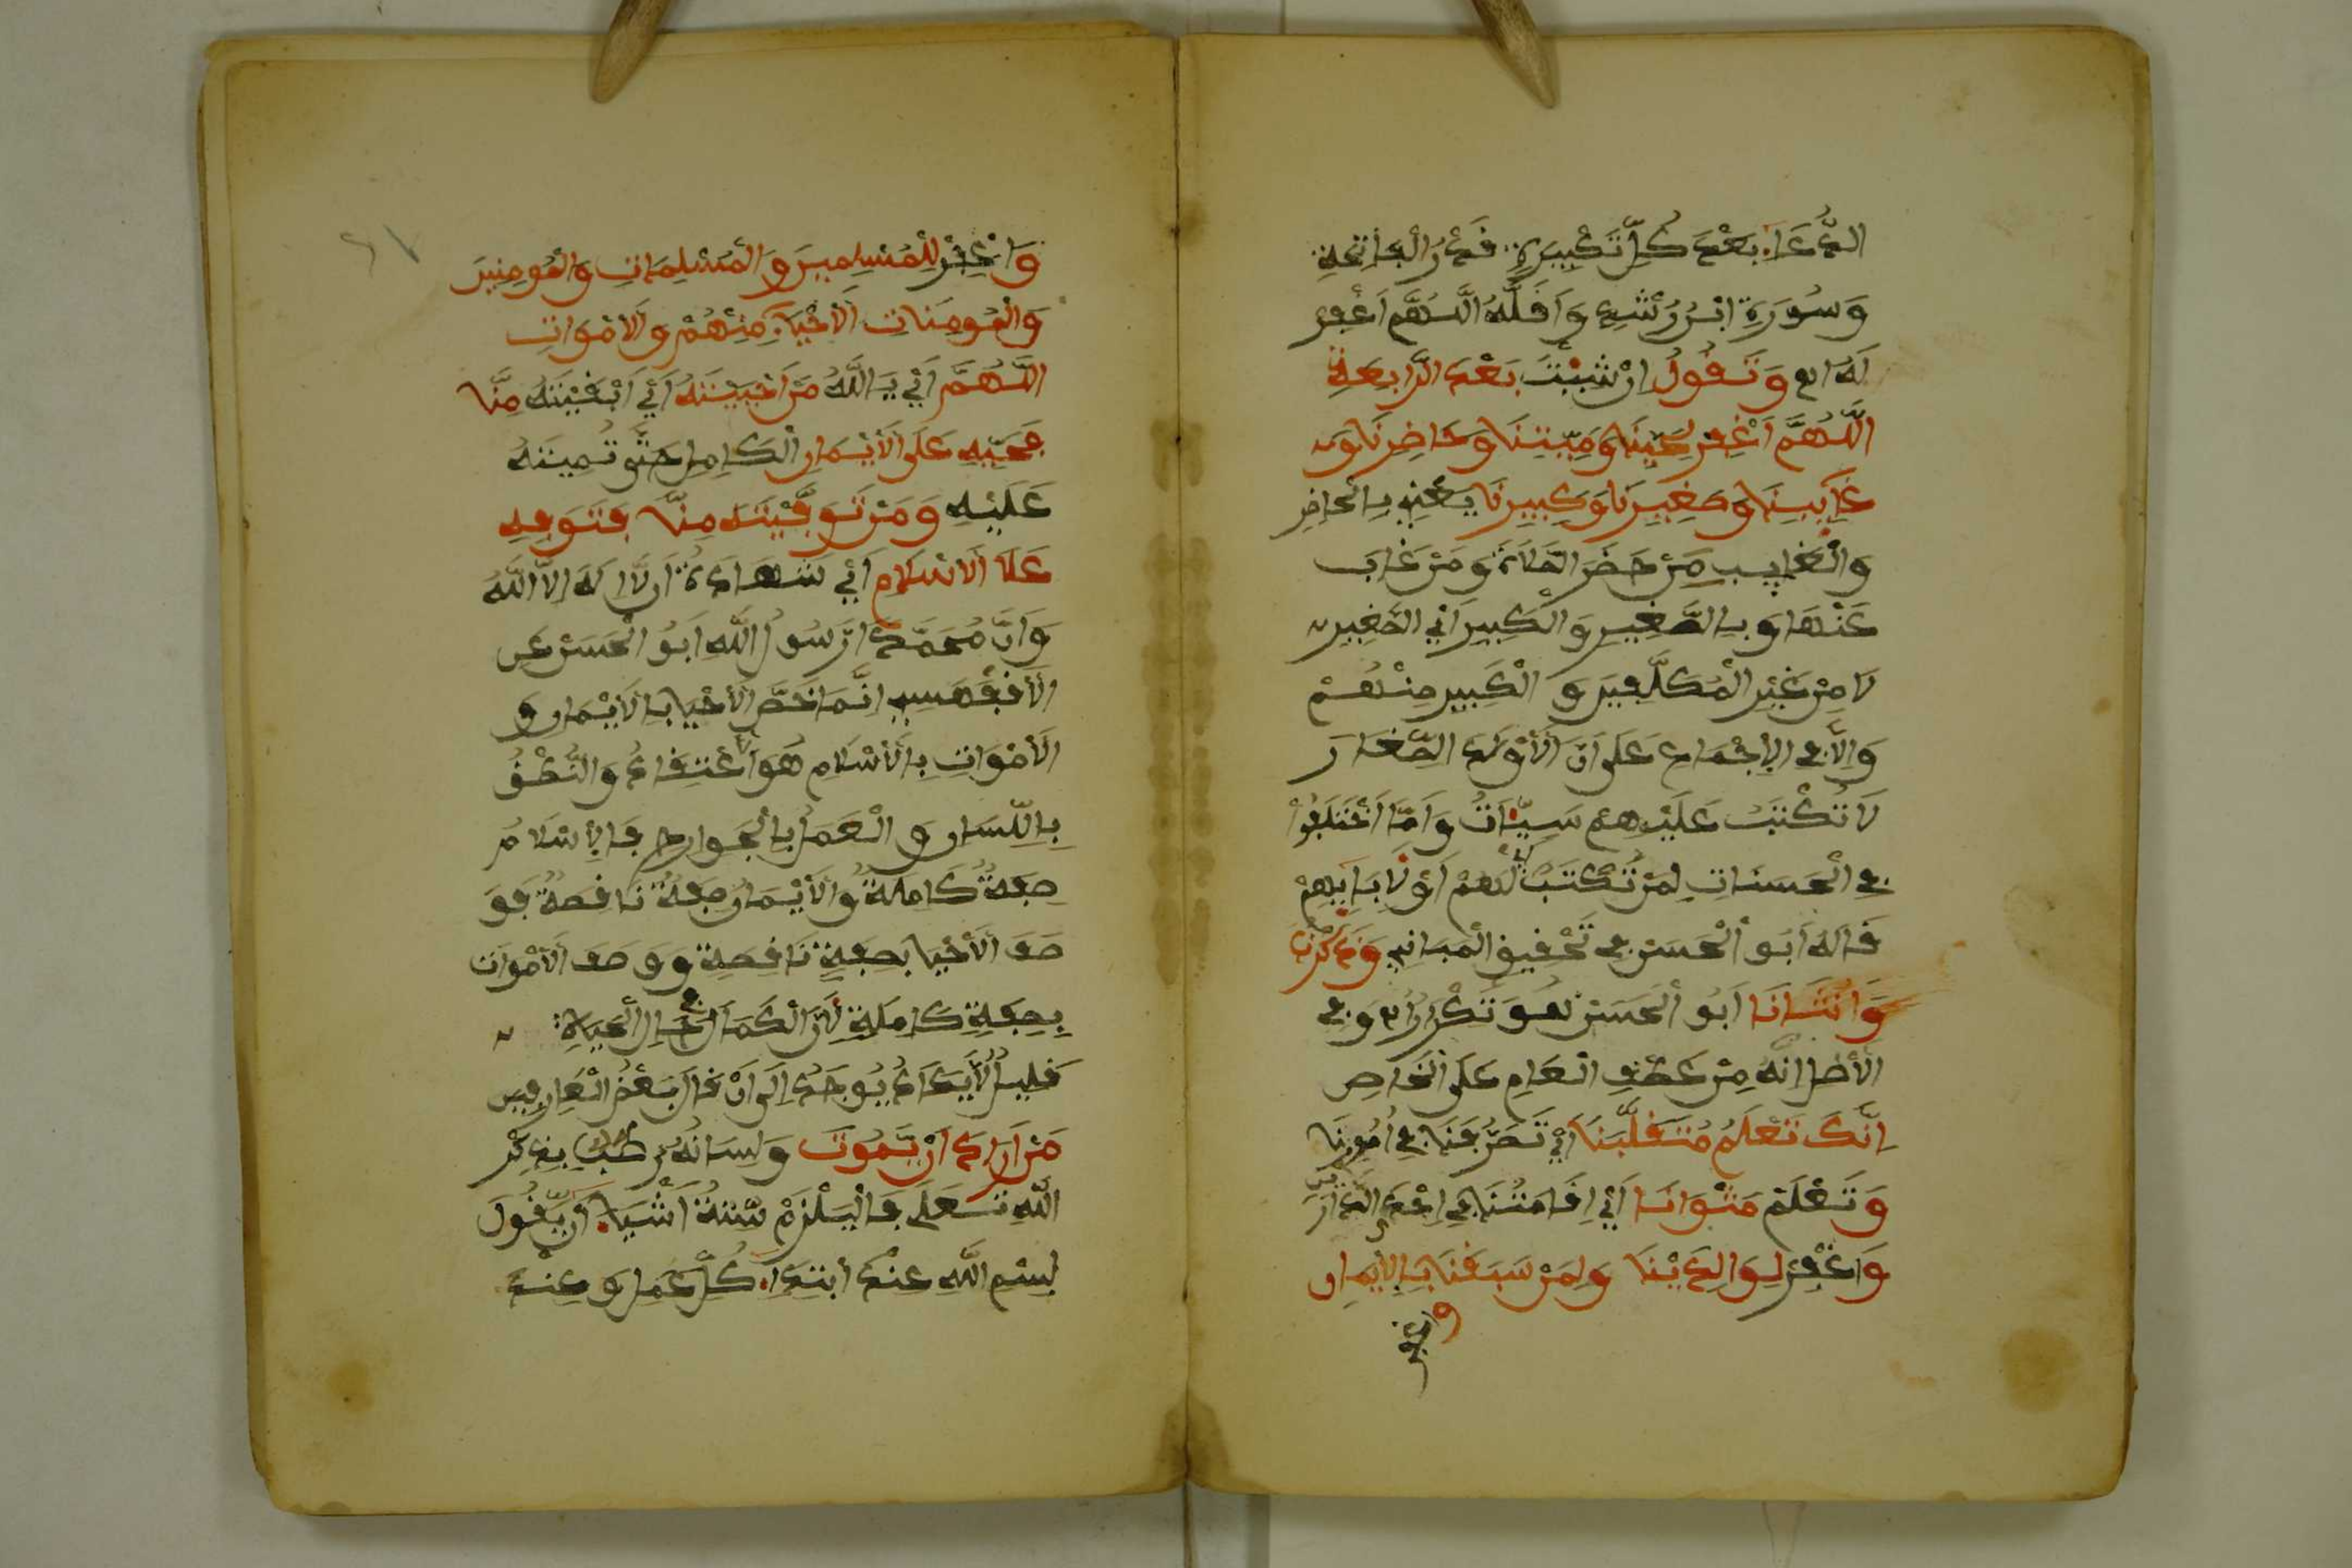 الدُّعَاءِ بَعْدَ كُلِّ تَكْبِيرَةٍ قَدْرُ الْفَاتِحَةِ
وَسُورَةٍ ابْنُ رُشْدٍ وَأَقَلُّهُ اللَّهُمَّ اغْفِرْ
لَهُ اه وَتَقُولُ إِنْ شِئْتَ بَعْدَ الرَّابِعَةِ
اللَّهُمَّ اغْفِرْ لِحَيِّنَا وَمَيِّتِنَا وَحَاضِرِنَا وَ
غَايِبِنَا وَصَغِيرِنَا وَكَبِيرِنَا يَعْنِي بِالْحَاضِرِ
وَالْغَايِبِ مَنْ حَضَرَ الصَّلَاةَ وَمَنْ غَابَ
عَنْهَا وَبِالصَّغِيرِ وَالْكَبِيرِ أَيِ الصَّغِيرِ
لَا مِنْ غَيْرِ الْمُكَلَّفِينَ وَالْكَبِيرِ مِنْهُمْ
وَإِلَّا فِي الْإِجْمَاعِ عَلَى أَنَّ الْأَوْلَادَ الصِّغَارَ
لَا تُكْتَبُ عَلَيْهِمْ سَيِّئَاتٌ وَأَمَّا اخْتَلَفُوا
فِي الْحَسَنَاتِ لِمَنْ تُكْتَبُ لَهُمْ أَوْ لِآبَايِهِمْ
قَالَهُ أَبُو الْحَسَنِ فِي تَحْقِيقِ الْمَبَانِي وَذَكَرِنَا
وَأُنْثَانَا أَبُو الْحَسَنِ هُوَ تَكْرَارٌ اه وَفِي
الْأَصْلِ أَنَّهُ مِنْ عَطْفِ الْعَامِ عَلَى الْخَاصِ
إِنَّكَ تَعْلَمُ مُتَقَلَّبَنَا أَيْ تَصَرُّفَنَا فِي أُمُورِنَا
وَتَعْلَمُ مَثْوَانَا أَيْ إِقَامَتُنَا فِي إِحْدَى الدَّارَيْنِ
وَاغْفِرْ لِوَالِدَيْنَا وَلِمَنْ سَبَقَنَا بِالْإِيمَانِ
واغفر
وَاغْفِرْ لِلْمُسْلِمِينَ وَالْمُسْلِمَاتِ وَالْمُومِنِينَ
وَالْمُومِنَاتِ الْأَحْيَاءِ مِنْهُمْ وَالْأَمْوَاتِ
اللَّهُمَّ أَيْ يَا اللَّهُ مَنْ أَحْيَيْتَهُ أَيْ أَبْقَيْتَهُ مِنَّا
فَأَحْيِهِ عَلَى الْأَيْمَانِ الْكَامِلِ حَتَّى تُمِيتَهُ
عَلَيْهِ وَمَنْ تَوَفَّيْتَهُ مِنَّا فَتَوَفِّهِ
عَلَا الْاسْلَامِ أَيْ شَهَادَةُ أَن لَّا إِلَهَ إِلَّا اللَّهُ
وَأَنَّ مُحَمَّدًا رَّسُولُ اللَّهِ أَبُو الْحَسَنِ عَنِ
الْأَقْفَهْسِي إِنَّمَا خَصَّ الْأَحْيَا بِالْأَيْمَانِ وَ
الْأَمْوَاتِ بِالْأَسْلَامِ هُوَ الْاعْتِقَادُ وَالنُّطْقُ
بِاللِّسَانِ وَالْعَمَلُ بِالْجَوَارِحِ فَالْإِسْلَامُ
صِفَةٌ كَامِلَةٌ وَالْأَيْمَانُ صِفَةٌ نَاقِصَةٌ فَوَ
صَفَ الْأَحْيَا بِصِفَةٍ نَاقِصَةٍ وَوَصَفَ الْأَمْوَاتَ
بِصِفَةٍ كَامِلَةٍ لِأَنَّ الْكَمَالَ فِي حَالِ الْحَيَاةِ
قَلِيلٌ لَا يَكَادُ يُوجَدُ إِلَى أَنْ قَالَ بَعْضُ الْعَارِفِينَ
مَنْ أَرَادَ أَنْ يَّمُوتَ وَلِسَانُهُ رَطْبٌ بِذِكْرِ
اللَّهِ تَعَلَى فَالْيَلْزَمْ سِتَّةُ أَشْيَاءَ أَن يَّقُولَ
بِسْمِ اللَّهِ عِنْدَ ابْتِدَاءِ كُلِّ عَمَلٍ وَعِنْدَ